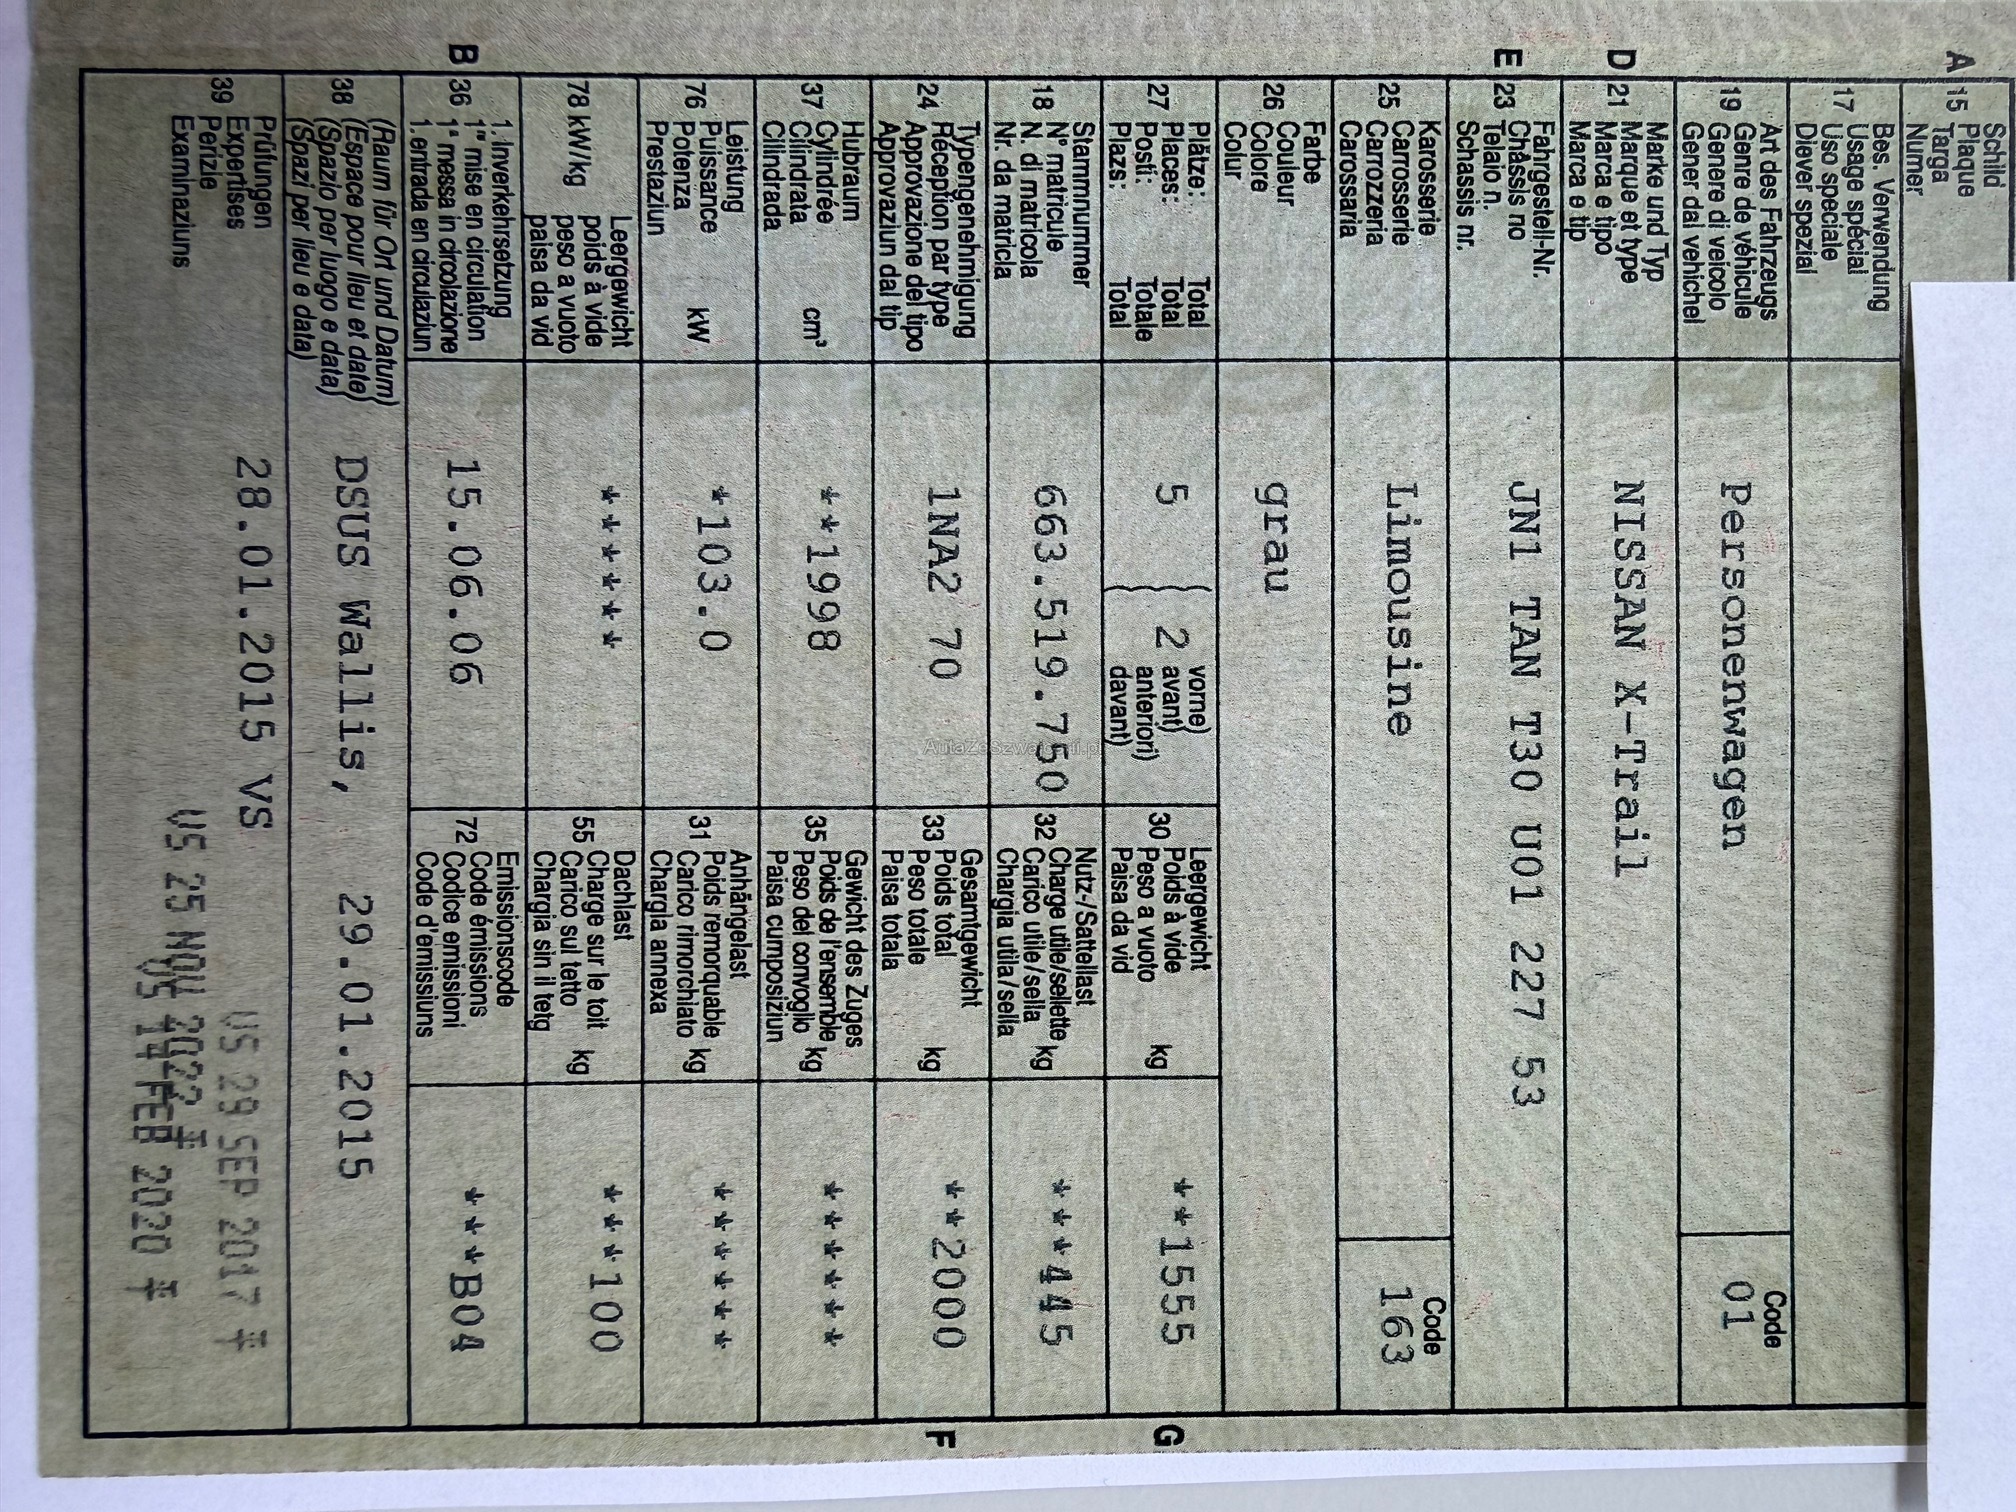 A 15 Schild
Plaque
Targa
Numer
17 Bes. Verwendung
Usage spécial
Uso speciale
Diever spezial
19 Art des Fahrzeugs
Genre de véhicule
Genere di veicolo
Gener dal vehichel
Personenwagen
Code
01
D 21 Marke und Typ
Marque et type
Marca e tipo
Marca e tip
NISSAN X-Trail
E 23 Fahrgestell-Nr.
Châssis no
Telaio n.
Schassis nr.
JN1 TAN T30 U01 227 53
25 Karosserie
Carrosserie
Carrozzeria
Carossaria
Limousine
Code
163
26 Farbe
Couleur
Colore
Colur
grau
27 Plätze: Total
Places: Total
Posti: Totale
Plazs: Total
5
2
vorne)
avant)
anteriori)
davant)
30 Leergewicht
Poids à vide
Peso a vuoto kg
Paisa da vid
**1555
G
18 Stammnummer
N° matricule
N. di matricola
Nr. da matricla
663.519.750
32 Nutz-/Sattellast
Charge utile/sellette
Carico utile/sella kg
Chargia utila/sella
***445
24 Typengenehmigung
Réception par type
Approvazione del tipo
Approvaziun dal tip
1NA2 70
33 Gesamtgewicht
Poids total
Peso totale kg
Paisa totala
**2000
F
37 Hubraum
Cylindrée
Cilindrata cm³
Cilindrada
**1998
35 Gewicht des Zuges
Poids de l'ensemble
Peso del convoglio kg
Paisa cumposiziun
******
76 Leistung
Puissance
Potenza kW
Prestaziun
*103.0
31 Anhängelast
Poids remorquable
Carico rimorchiato kg
Chargia annexa
******
78 kW/kg Leergewicht
poids à vide
peso a vuoto
paisa da vid
******
55 Dachlast
Charge sur le toit
Carico sul tetto kg
Chargia sin il tetg
***100
B 36 1. Inverkehrsetzung
1re mise en circulation
1a messa in circolazione
1. entrada en circulaziun
15.06.06
72 Emissionscode
Code émissions
Codice emissioni
Code d'emissiuns
***B04
38 (Raum für Ort und Datum)
(Espace pour lieu et date)
(Spazio per luogo e data)
(Spazi per lieu e data)
DSUS Wallis, 29.01.2015
39 Prüfungen
Expertises
Perizie
Examinaziuns
28.01.2015 VS
VS 29 SEP 2017
VS 25 NOV 2022
VS 14 FEB 2020
AutaZeSzwajcarii.pl